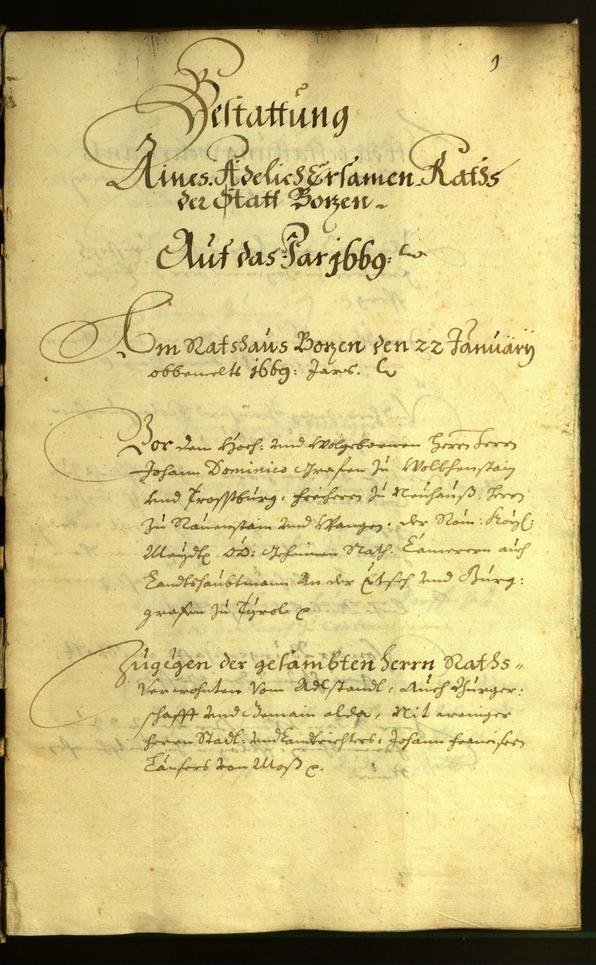 1
Bestattung
Aines Adelich Ersamen Raths
der Statt Bozen.
Auf das Jar 1669:
Am Rathaus Bozen den 22 January
obbemelts 1669: Jars.
Vor dem Hoch: und Wolgebornen Herrn Herrn
Johann Dominico Grafen zu Wolkhenstain
und Trosstburg, Freiherrn zu Neuhauß, Herrn
zu und der Röm: Kay:
OÖ: Gehaimen Rath, Camerern auch
Landtshaubtmann an der Etsch und Burg:
grafen zu Tyrol
Zugegen der gesambten Herrn Raths=
verwohnten vom Adlstandt, auch Burger:
schafft und Gemain alda, Mit
Herrn Stadt: und Landtrichters, Johann Francisen
von Moß